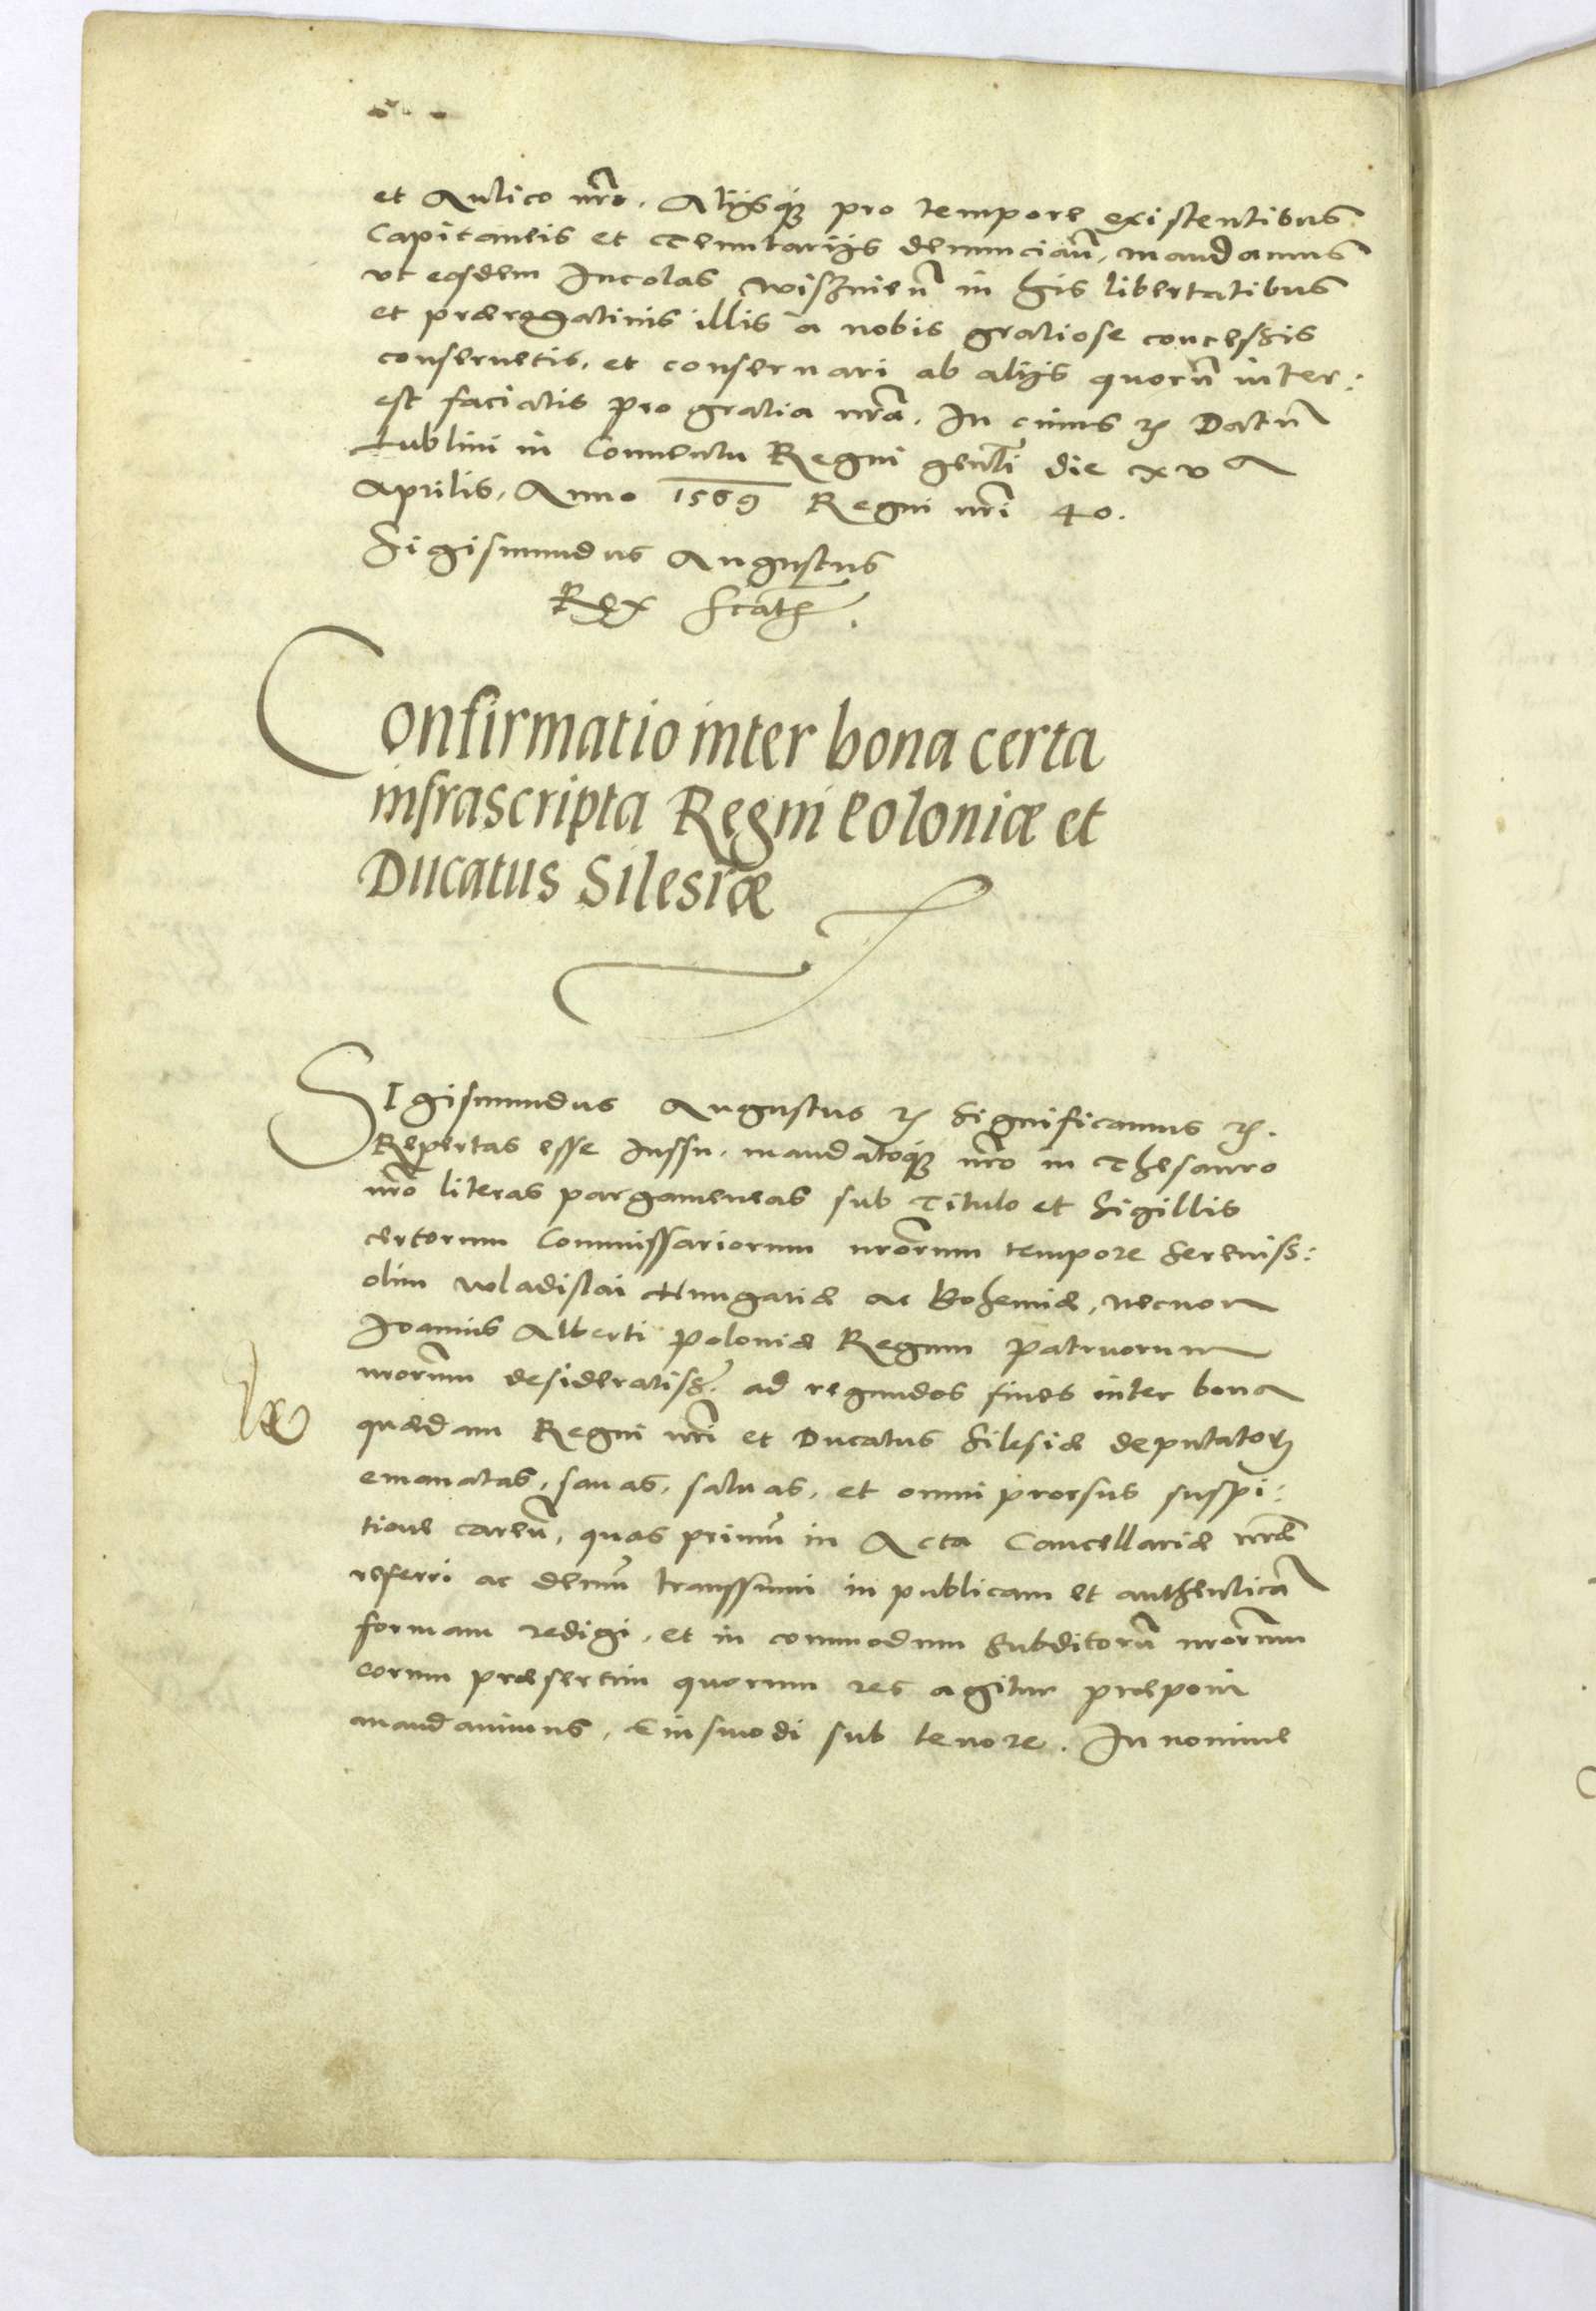 et Aulico nr̃o. Alijsq́ꝫ pro tempore existentibus
Capitaneis et Tenutarijs denunciañ, mandamus
vt eosdem Incolas Wisznień in his libertatibus
et prærogatiuis illis a nobis gratiose concessis
conseruetis, et conseruari ab alijs quorũ inter:
est faciatis pro gratia nr̃a. In cuius ꝛc̃ Datũ
Lublini in Conuentu Regni genĺi die xv a
Aprilis, Anno 1569 Regni nr̃i 40.
Sigismundus Augustus
Rex
Confirmatio inter bona certa
infrascripta Regni Poloniæ et
Ducatus Silesiæ
SIgismundus Augustus ꝛc̃ Significamus ꝛc̃.
Repertas esse Iussu, mandatoq́ꝫ nr̃o in Thesauro
nr̃o literas pargameneas sub Titulo et Sigillis
certorum Commissariorum nr̃orum tempore Sereniss:
olim Wladislai Hungariæ ac Bohemiæ, necnon
Ioannis Alberti Poloniæ Regum Patruorum
nr̃orum desideratiss: ad regundos fines inter bona
quædam Regni nr̃i et Ducatus Silesiæ deputatorꝫ
emanatas, sanas, saluas, et omni prorsus suspi:
tione careñ, quas primũ in Acta Cancellariæ nr̃æ
referri ac demũ transsumi in publicam et authenticã
formam redigi, et in commodum Subditorũ nr̃orum
eorum præsertim quorum res agitur præponi
mandauimus, Eiusmodi sub tenore. In nomine